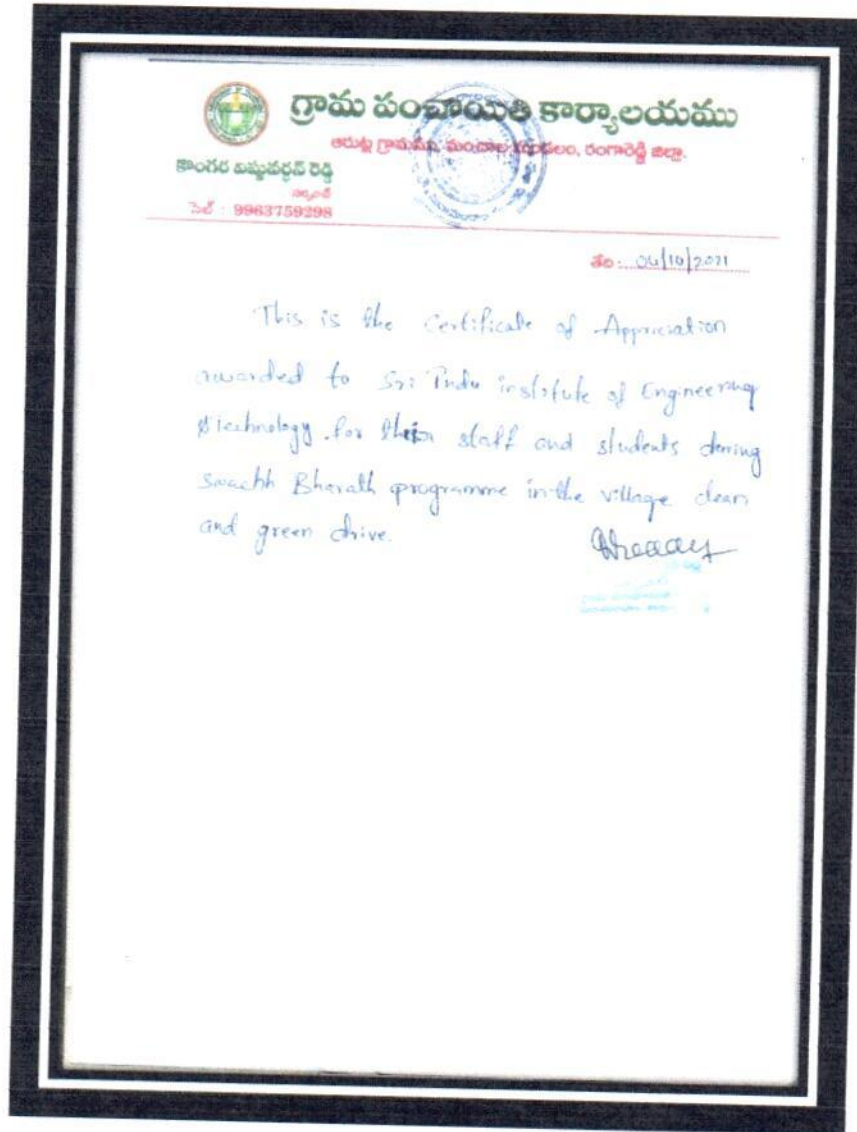 గ్రామ పంచాయితి కార్యాలయము
ఆరుట్ల గ్రామము, మంచాల మండలం, రంగారెడ్డి జిల్లా.
కొంగర విష్ణువర్ధన్ రెడ్డి
సర్పంచ్
సెల్ : 9963759298
తేది: 04/10/2021
This is the Certificate of Appriciation
awarded to Sri Indu institute of Engineering
&Technology for their staff and students during
swachh Bharath programme in the village clean
and green drive.